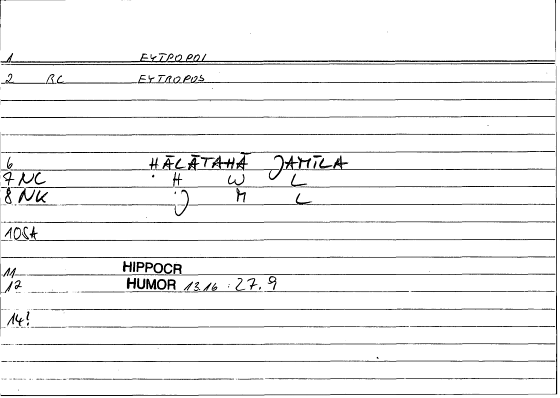 1 ΕΥΤΡΟΡΟΙ
2 RC ΕΥΤROPOS
6 HĀLĀTAHĀ JAMĪLA
7 NC H W L
8 NK J M L
10 SA
11 HIPPOCR
12 HUMOR 13.16 : 27.9
14!